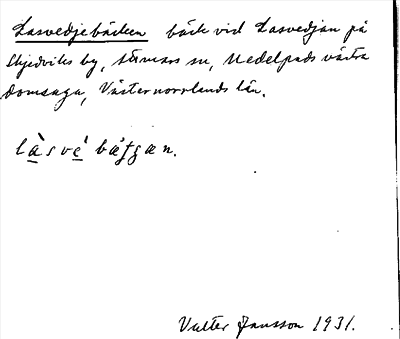 Lasvedjebäcken bäck vid Lasvedjan på
Skjedviks by, Stöde sn, Medelpads västra
domsaga, Västernorrlands län.
làsvè bäʃgæn.
Valter Jansson 1931.